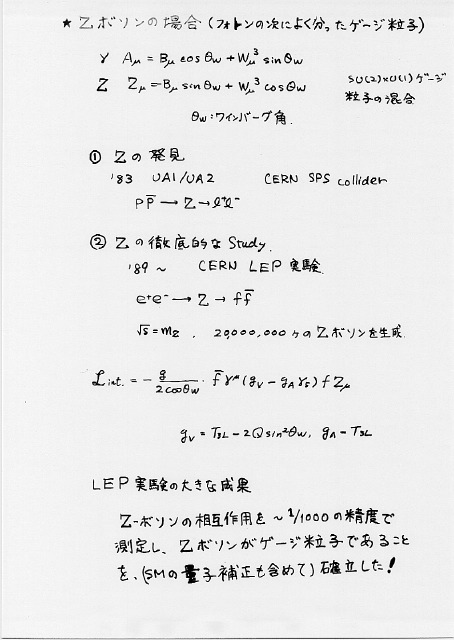 ★ Zボソンの場合 (フォトンの次によく分ったゲージ粒子)
γ Aμ = Bμ cosθw + Wμ³ sinθw
Z Zμ = -Bμ sinθw + Wμ³ cosθw
SU(2)×U(1) ゲージ
粒子の混合
θw : ワインバーグ角
① Zの発見
'83 UA1/UA2 CERN SPS collider
pp̄ → Z → l⁺l⁻
② Zの徹底的なStudy.
'89 ~ CERN LEP 実験
e⁺e⁻ → Z → ff̄
√s = mz , 20,000,000ヶのZボソンを生成.
𝓛int. = - g/2cosθw · f̄γ^μ(gV - gAγ5)fZμ
gV = T3L - 2Q sin²θw, gA - T3L
LEP実験の大きな成果
Z-ボソンの相互作用を ~ 1/1000の精度で
測定し、Zボソンがゲージ粒子であること
を、(SMの量子補正も含めて) 確立した!